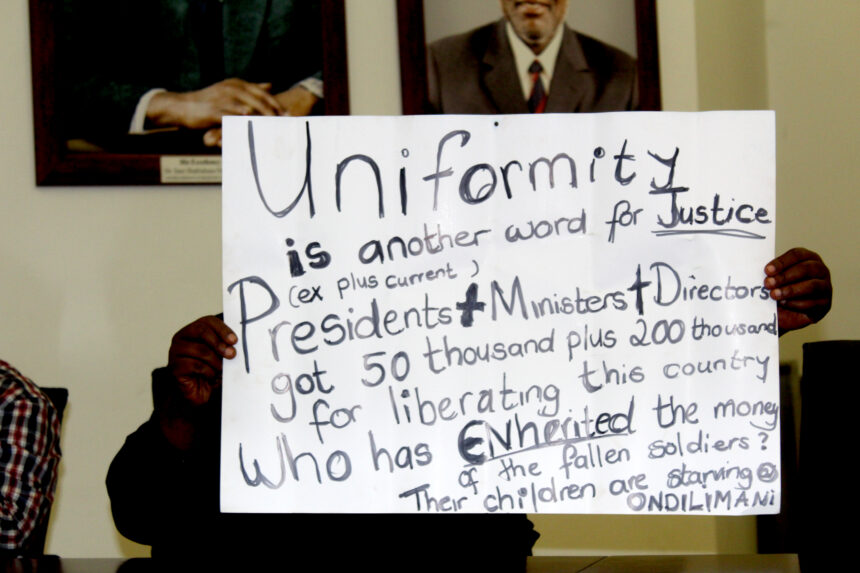 Uniformity
is another word for Justice
(ex plus current)
Presidents + Ministers + Directors
got 50 thousand plus 200 thousand
for liberating this country
Who has ENherited the money
of the fallen soldiers?
Their children are starving @
ONDILIMANI